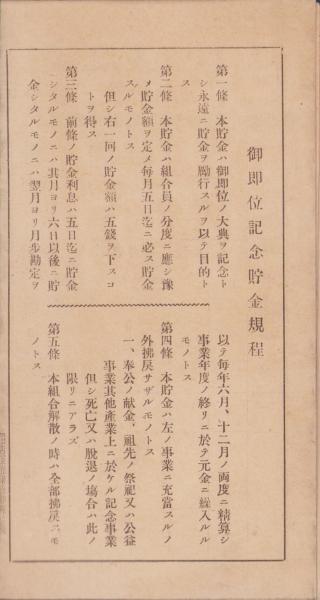 御即位記念貯金規程
第一條　本貯金ハ御即位ノ大典ヲ記念ト
シ永遠ニ貯金ヲ勵行スルヲ以テ目的ト
ス
第二條　本貯金ハ組合員ノ分度ニ應シ豫
メ貯金額ヲ定メ毎月五日迄ニ必ス貯金
スルモノトス
但シ右一回ノ貯金額ハ五錢ヲ下スコ
トヲ得ス
第三條　前條ノ貯金利息ハ五日迄ニ貯金
シタルモノニハ其月ヨリ六日以後ニ貯
金シタルモノニハ翌月ヨリ月步勘定ヲ
以テ毎年六月、十二月ノ両度ニ精算シ
事業年度ノ終リニ於テ元金ニ繰入ルル
モノトス
第四條　本貯金ハ左ノ事業ニ充當スルノ
外拂戾サザルモノトス
一、奉公ノ献金、祖先ノ祭祀又ハ公益
事業其他產業上ニ於ケル記念事業
但シ死亡又ハ脫退ノ塲合ハ此ノ
限リニアラズ
第五條　本組合解散ノ時ハ全部拂戾スモ
ノトス